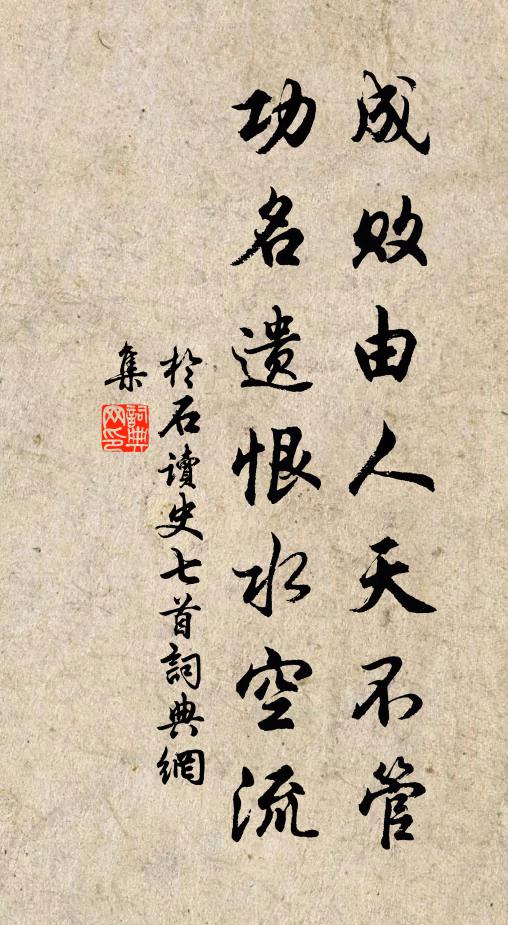 成敗由人天不管
功名遺恨水空流
於石讀史七首詞典網
集
詞典
网印